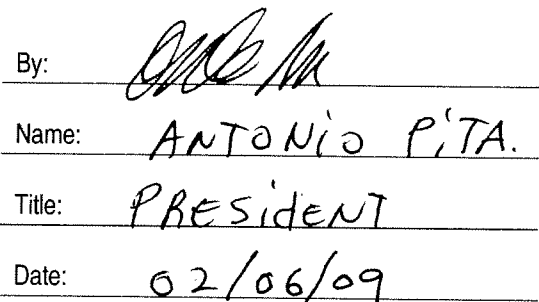 By:
Name: ANTONiO PiTA.
Title: PRESidENT
Date: 02/06/09